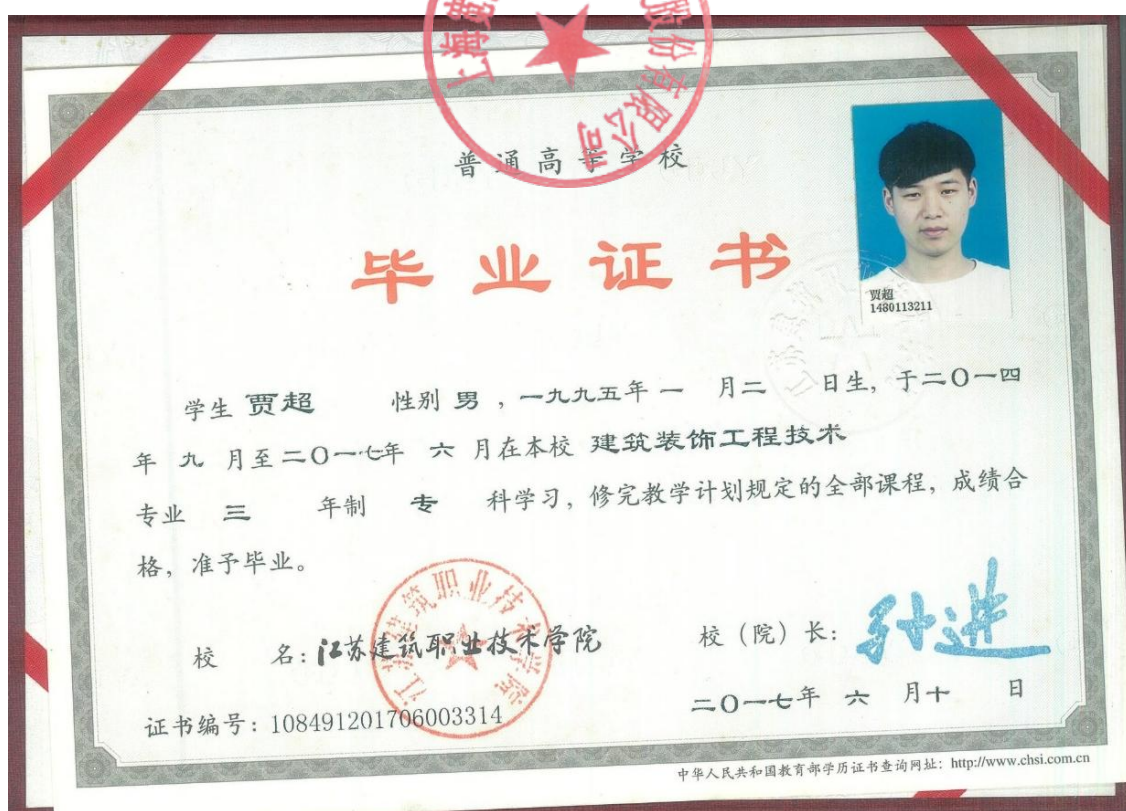 上海 股份有限公司
普通高等学校
毕业证书
贾超
1480113211
学生 贾超 性别 男 ，一九九五年 一 月二 日生，于二〇一四
年 九 月至二〇一七年 六 月在本校 建筑装饰工程技术
专业 三 年制 专 科学习，修完教学计划规定的全部课程，成绩合
格，准予毕业。
江苏建筑职业技术学院
校 名：江苏建筑职业技术学院
校（院）长：孙进
二〇一七年 六 月十 日
证书编号：108491201706003314
中华人民共和国教育部学历证书查询网址：http://www.chsi.com.cn